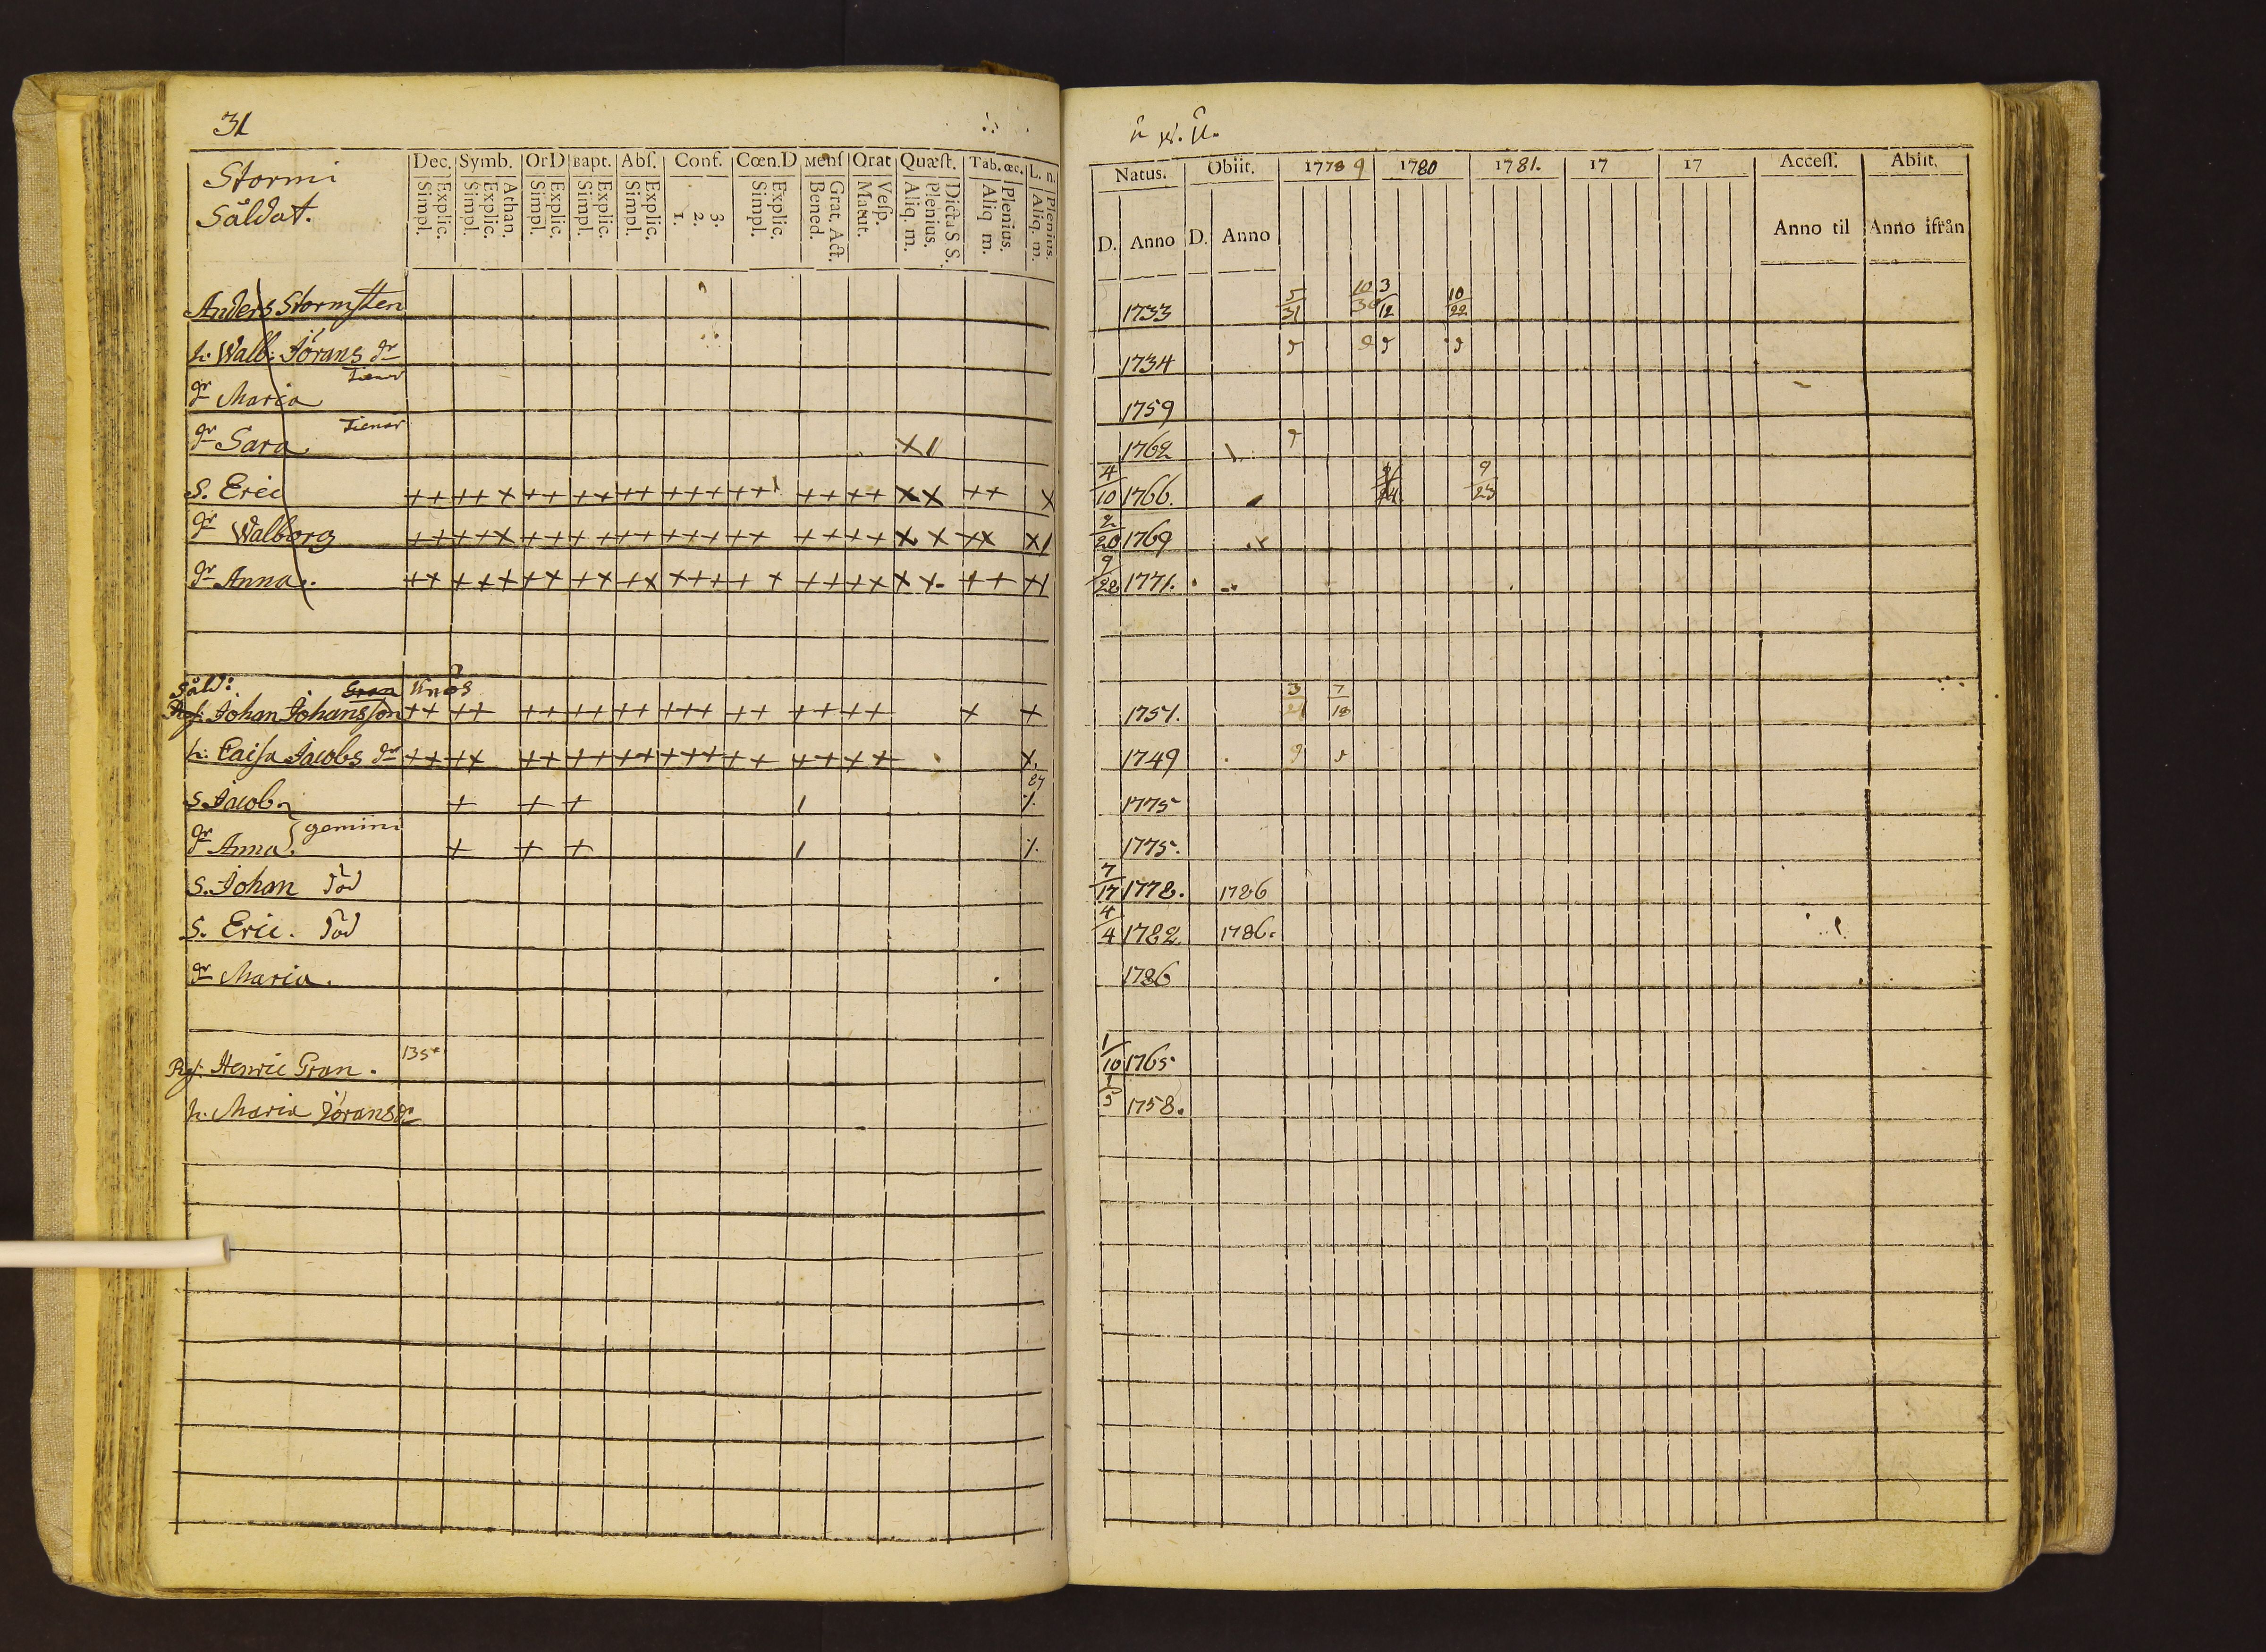 31
Stormi
Såldat.
Dec. Symb. OrD Bapt. Abs. Conf. Cœn.D Mens Orat Quæst. Tab. œc. L. n.
Simpl. Explic. Simpl. Explic. Athan. Simpl. Explic. Simpl. Explic. Simpl. Explic. 1. 2. 3. Simpl. Explic. Bened. Grat. Act. Matut. Vesp. Aliq. m. Plenius. Dicta S S. Aliq m. Plenius. Aliq. m. Plenius.
Natus. Obiit. 1778 9 1780 1781. 17 17 Access. Abiit.
D. Anno D. Anno Anno til Anno ifrån
Anders Stormsten 1733 5/31 10/30 3/12 10/22
h. Walb: Jörans dr 1734
Tienar
dr Maria 1759
dr Sara Tienar X/ 1762
S. Eric ++ ++ X ++ ++ ++ +++ ++ ++ ++ XX ++ X 4/10 1766. 9/23
dr Walborg ++ ++X ++ ++ ++ +++ ++ ++ ++ X X XX X/ 2/20 1769
dr Anna. ++ +++ ++ ++ ++ +++ + + ++ ++ X X ++ X/ 9/28 1771.
Såld: Gran
Johan Johansson ++ ++ ++ ++ ++ +++ ++ ++ ++ + + 1751. 3/21 7/18
h. Caisa Jacobs dr ++ ++ ++ ++ ++ +++ ++ ++ ++ X. 1749
87
S. Jacob + + + / 1775
gemini
dr Anna. + + + / 1775.
S. Johan död 7/17 1778. 1786
S. Eric. död 4/4 1782 1786.
dr Maria. 1786
Henric Gran. 135 1/10 1765
h. Maria Jörans dr 1/5 1758.